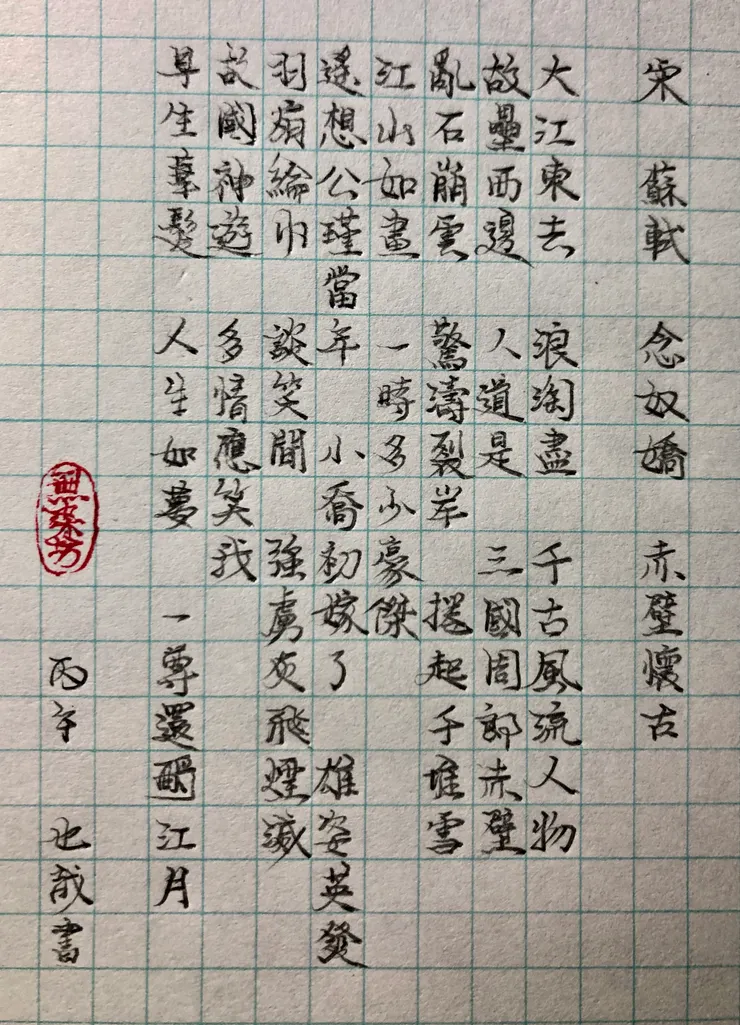 宋 蘇軾 念奴嬌 赤壁懷古
大江東去 浪淘盡 千古風流人物
故壘西邊 人道是 三國周郎赤壁
亂石崩雲 驚濤裂岸 捲起千堆雪
江山如畫 一時多少豪傑
遙想公瑾當年 小喬初嫁了 雄姿英發
羽扇綸巾 談笑間 強虜灰飛煙滅
故國神遊 多情應笑我
早生華髮 人生如夢 一尊還酹江月
丙午 也哉書